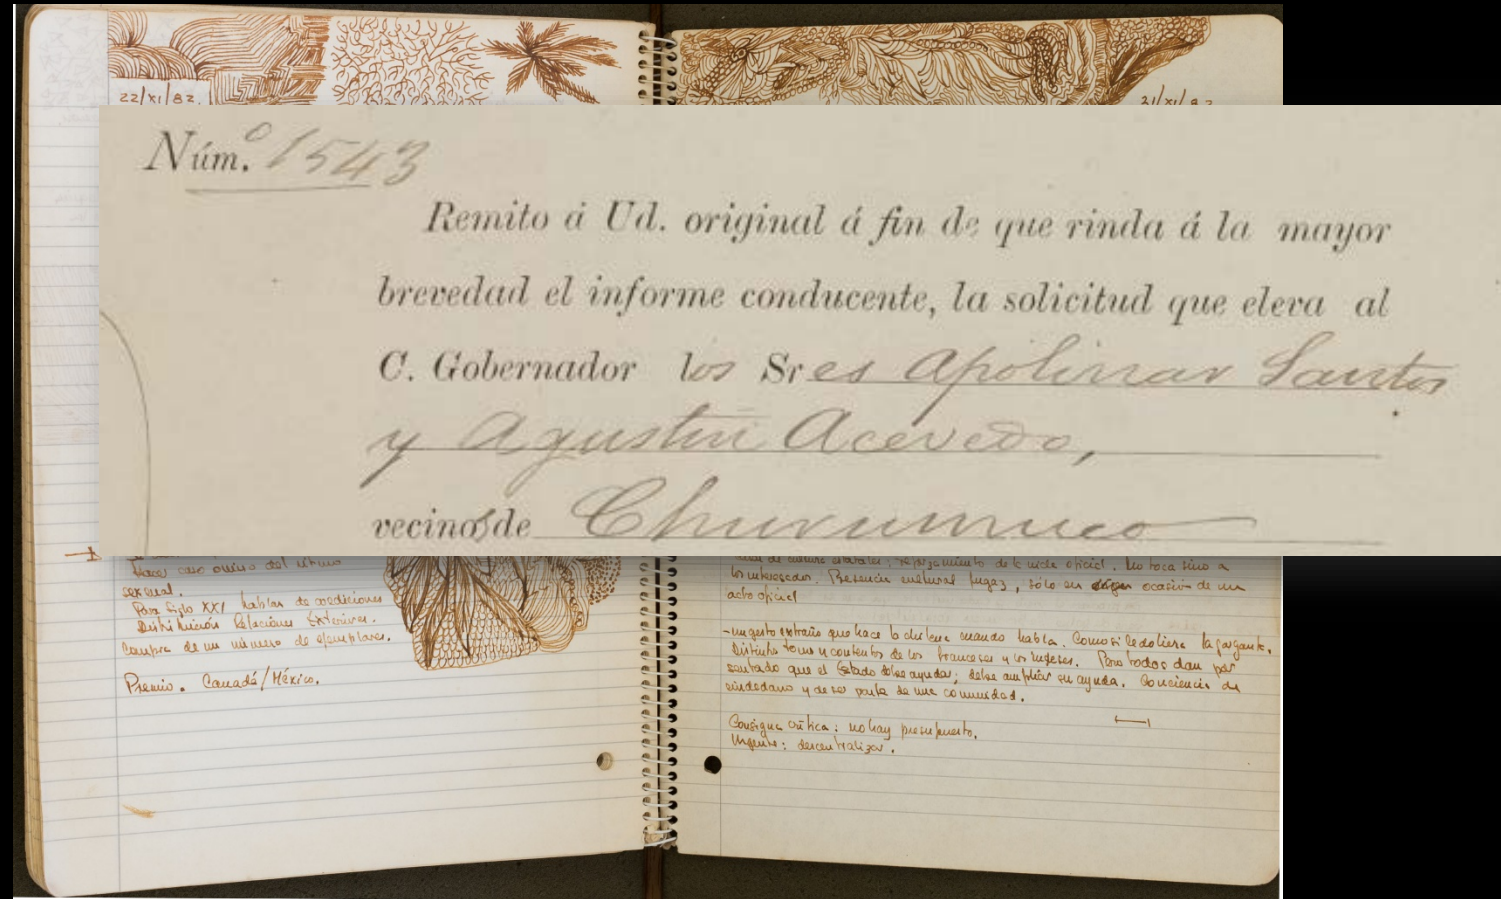 22/XI/82.
21/XI/82
Núm.º 1543
Remito á Ud. original á fin de que rinda á la mayor
brevedad el informe conducente, la solicitud que eleva al
C. Gobernador los Sres Apolinar Santos
y Agustin Acevedo,
vecinos de Churumuco
Hacer caso omiso del ritmo
sexenal.
Para Siglo XXI hablar de coediciones
Distribución Relaciones Exteriores.
Compra de un número de ejemplares.
Premio. Canadá/México.
de la visita oficial. No toca sino a
los interesados. Presencia cultural fugaz, sólo en ocasión de un
acto oficial
- un gesto extraño que hace la chilena cuando habla. Como si le doliera la garganta.
Distinto tono y contento de los franceses y los ingleses. Pero todos dan por
sentado que el Estado debe ayudar; debe ampliar su ayuda. Conciencia de
ciudadano y de ser parte de una comunidad.
Consigna crítica: no hay presupuesto.
Urgente: descentralizar.